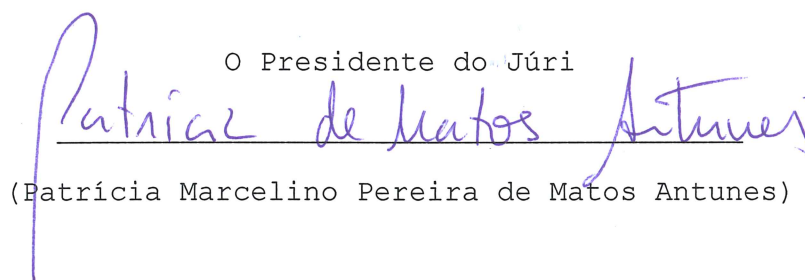 O Presidente do Júri
Patrícia de Matos Antunes
(Patrícia Marcelino Pereira de Matos Antunes)